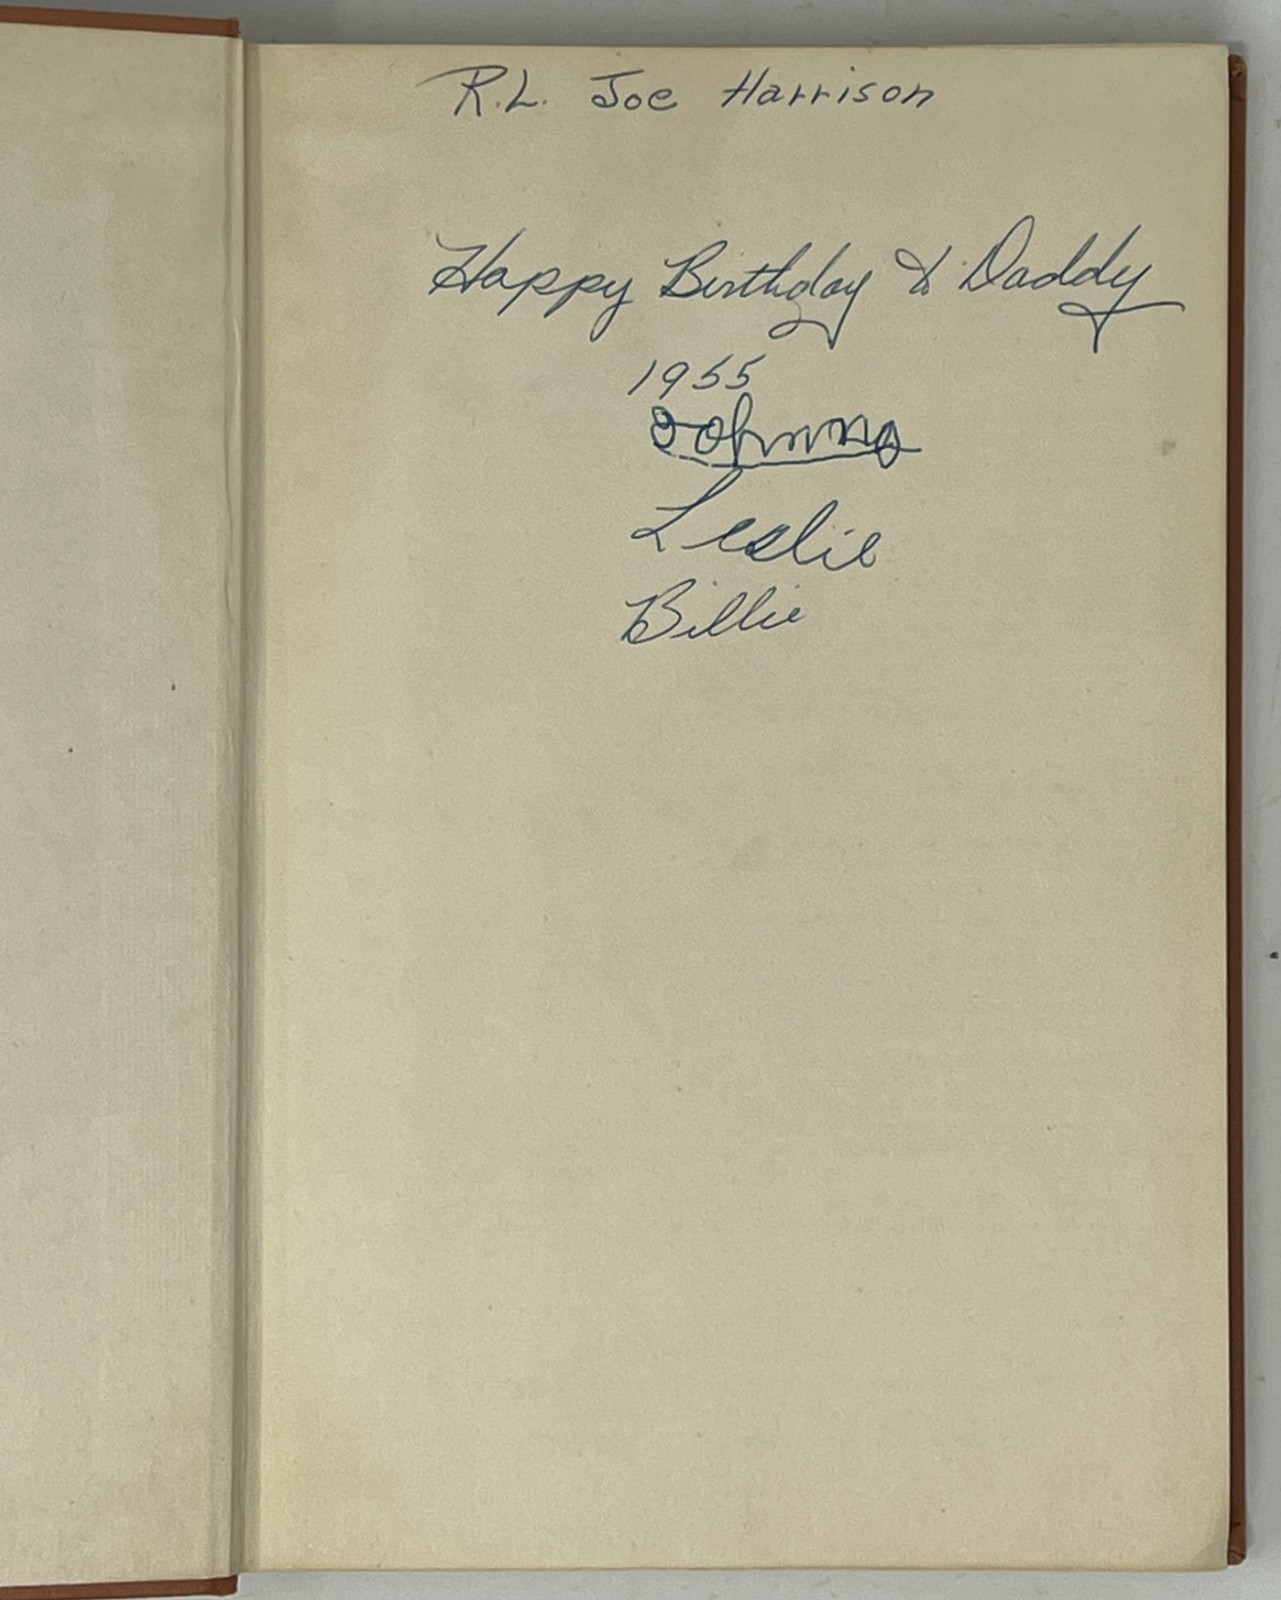 R.L. Joe Harrison
Happy Birthday & Daddy
1955
Johnny
Leslie
Billie